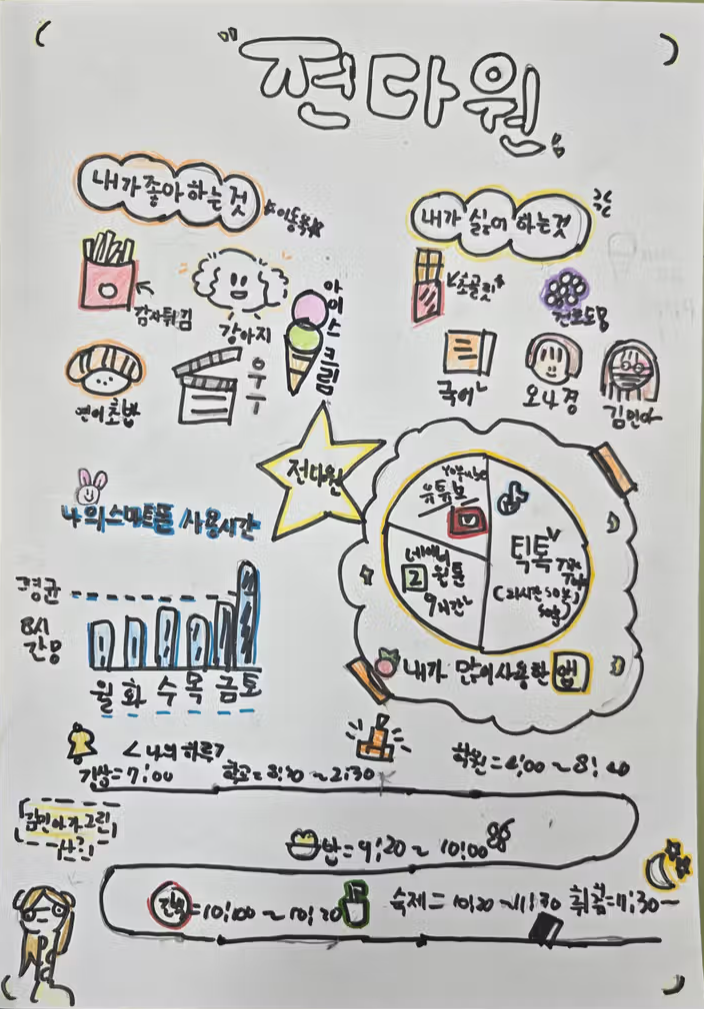 전다원
내가 좋아하는 것
내가 싫어 하는것
감자튀김
강아지
아이스크림
연어초밥
우유
초콜릿
국어
오나경
김민아
전다원
나의 스마트폰 사용시간
평균
8시
간
월 화 수 목 금 토
youtube
유튜브
네이버
웹툰
9시간
틱톡
내가 많이 사용한 앱
<나의 하루>
기상=7:00
학교=8:30~2:30
학원=4:00~8:40
밥=9:20~10:00
김민아가 그린
간식=10:00~10:20
숙제=10:20~11:30
취침=11:30~